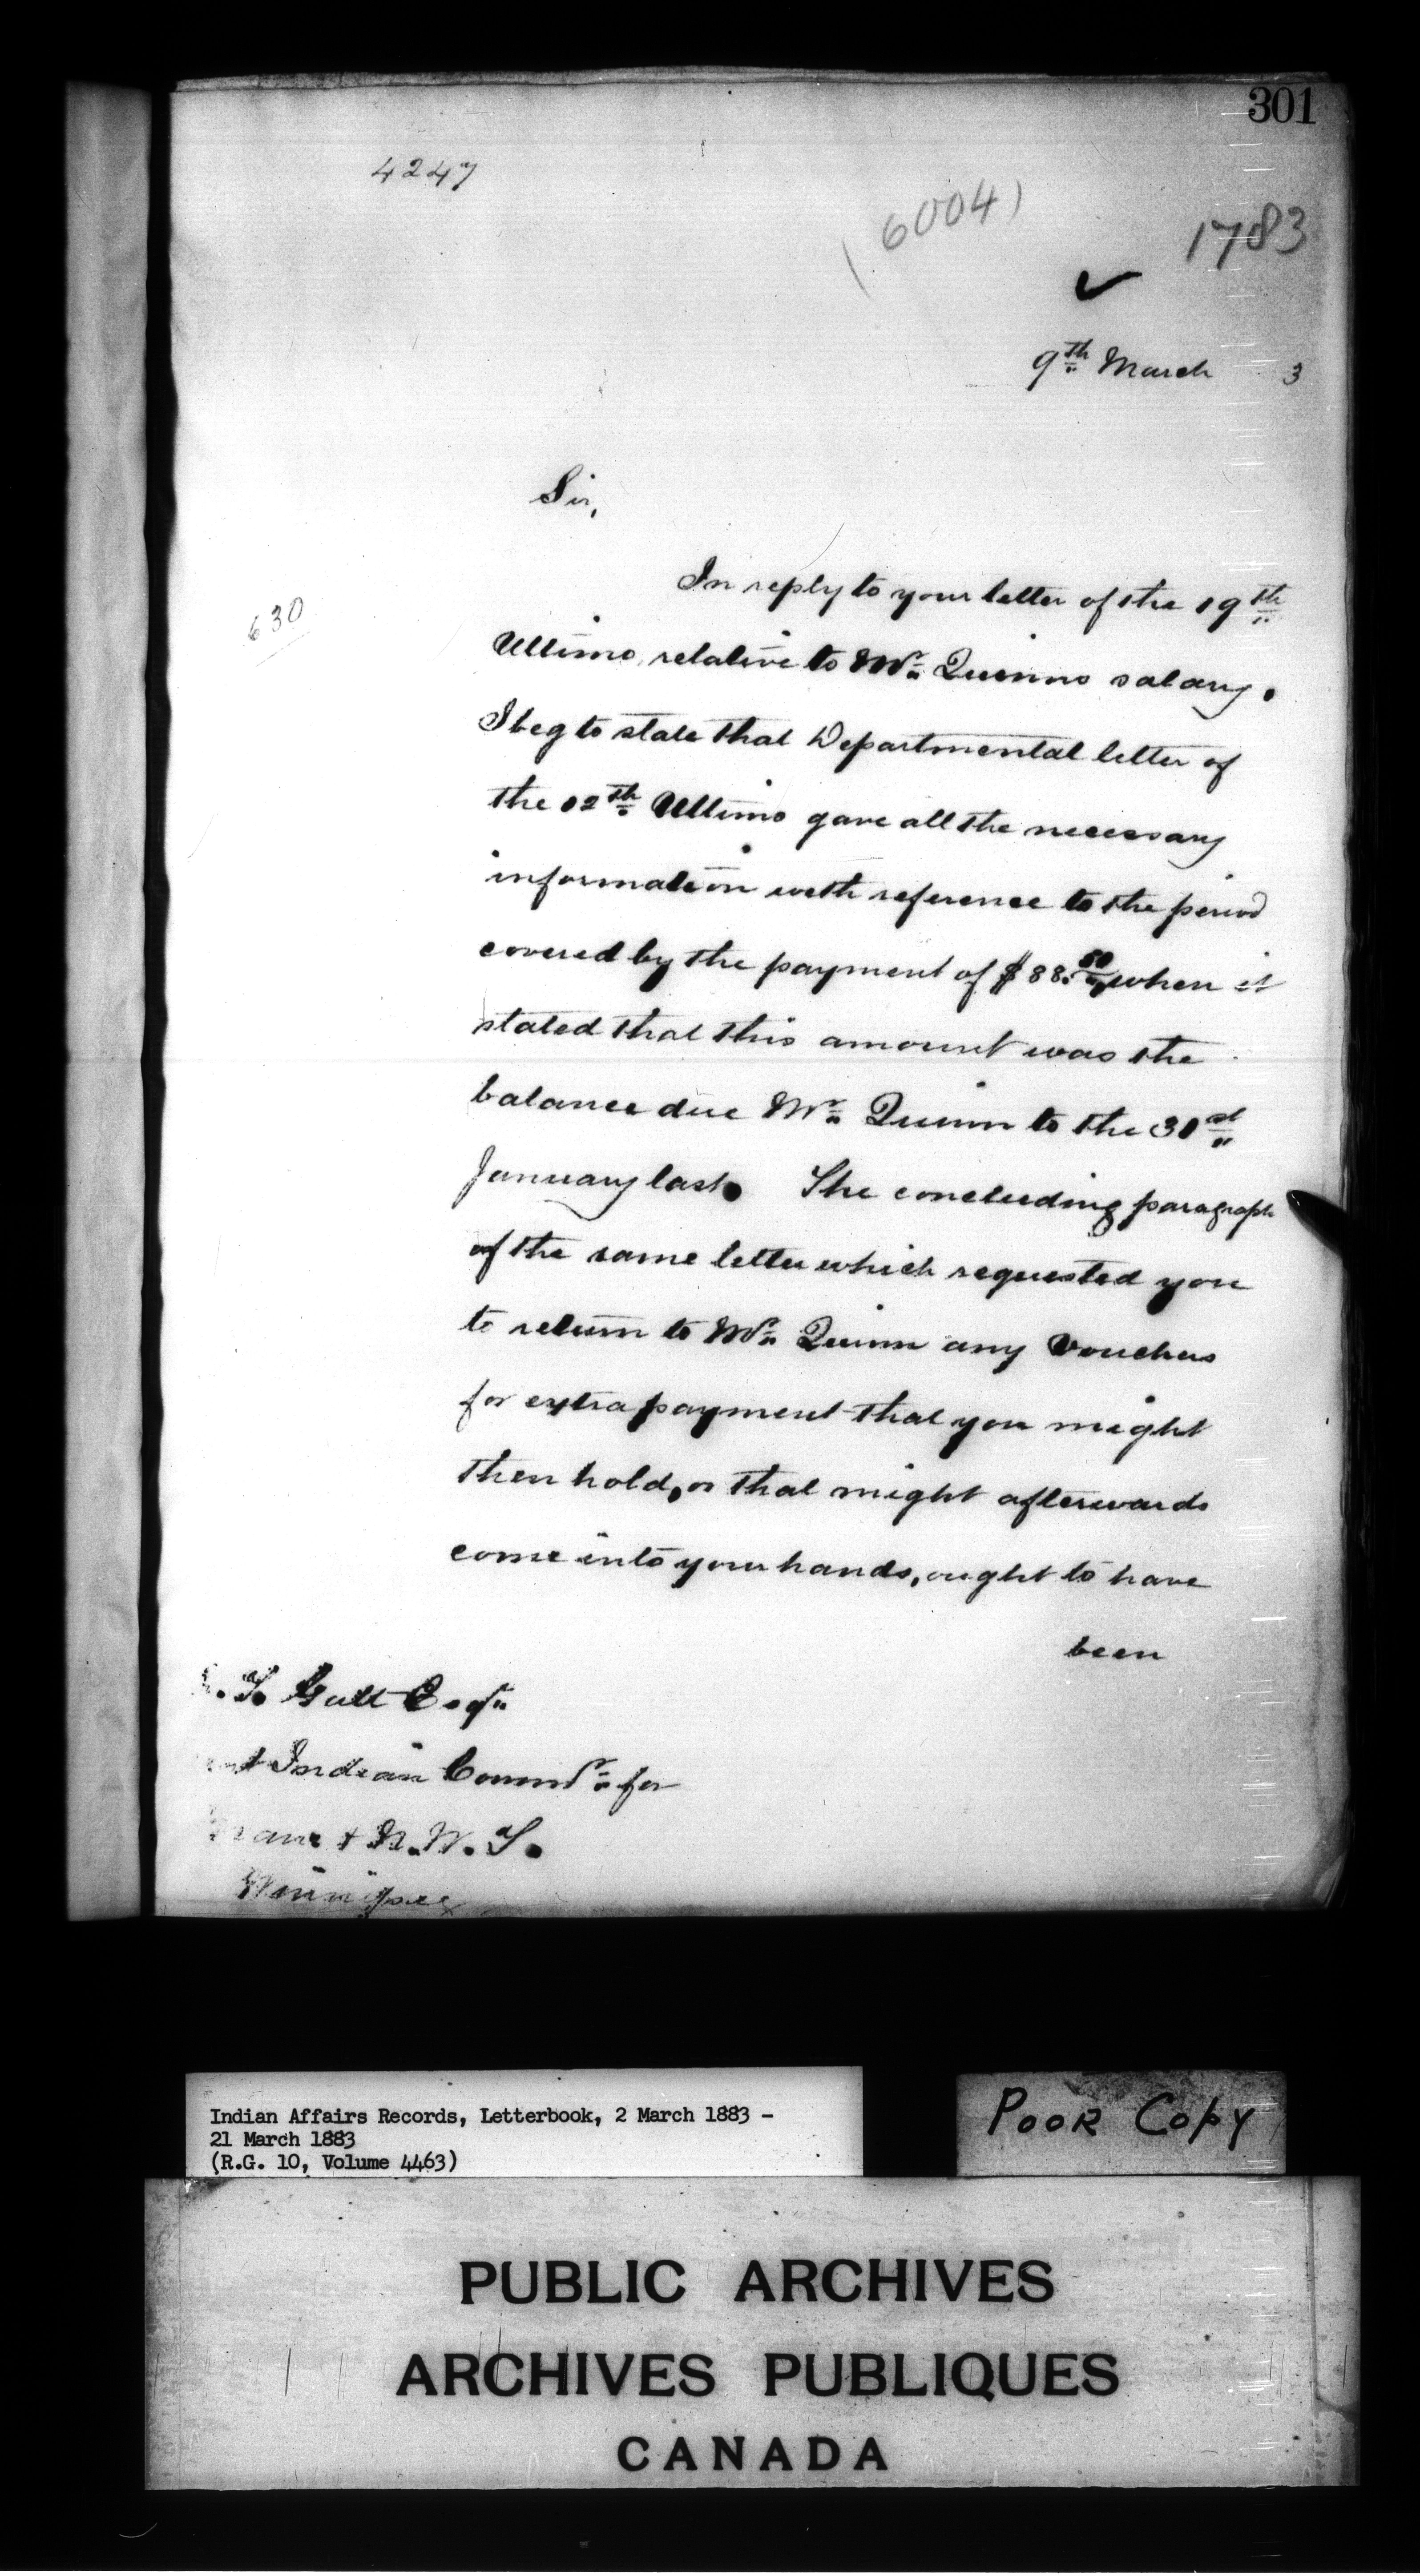 301
4247
(6004)
1783
9th March 3
Sir,
630
In reply to your letter of the 19th
Ultimo, relative to Mr. Quinns salary,
I beg to state that Departmental letter of
the 12th Ultimo gave all the necessary
information with reference to the period
covered by the payment of $88.50, when it
stated that this amount was the
balance due Mr. Quinn to the 31st
January last. The concluding paragraph
of the same letter which requested you
to return to Mr. Quinn any vouchers
for extra payment that you might
then hold, or that might afterwards
come into your hands, ought to have
been
. T. Galt Esqr.
t Indian Commr. for
& N.W.T.
Winnipeg
Indian Affairs Records, Letterbook, 2 March 1883 -
21 March 1883
(R.G. 10, Volume 4463)
POOR COPY
PUBLIC ARCHIVES
ARCHIVES PUBLIQUES
CANADA